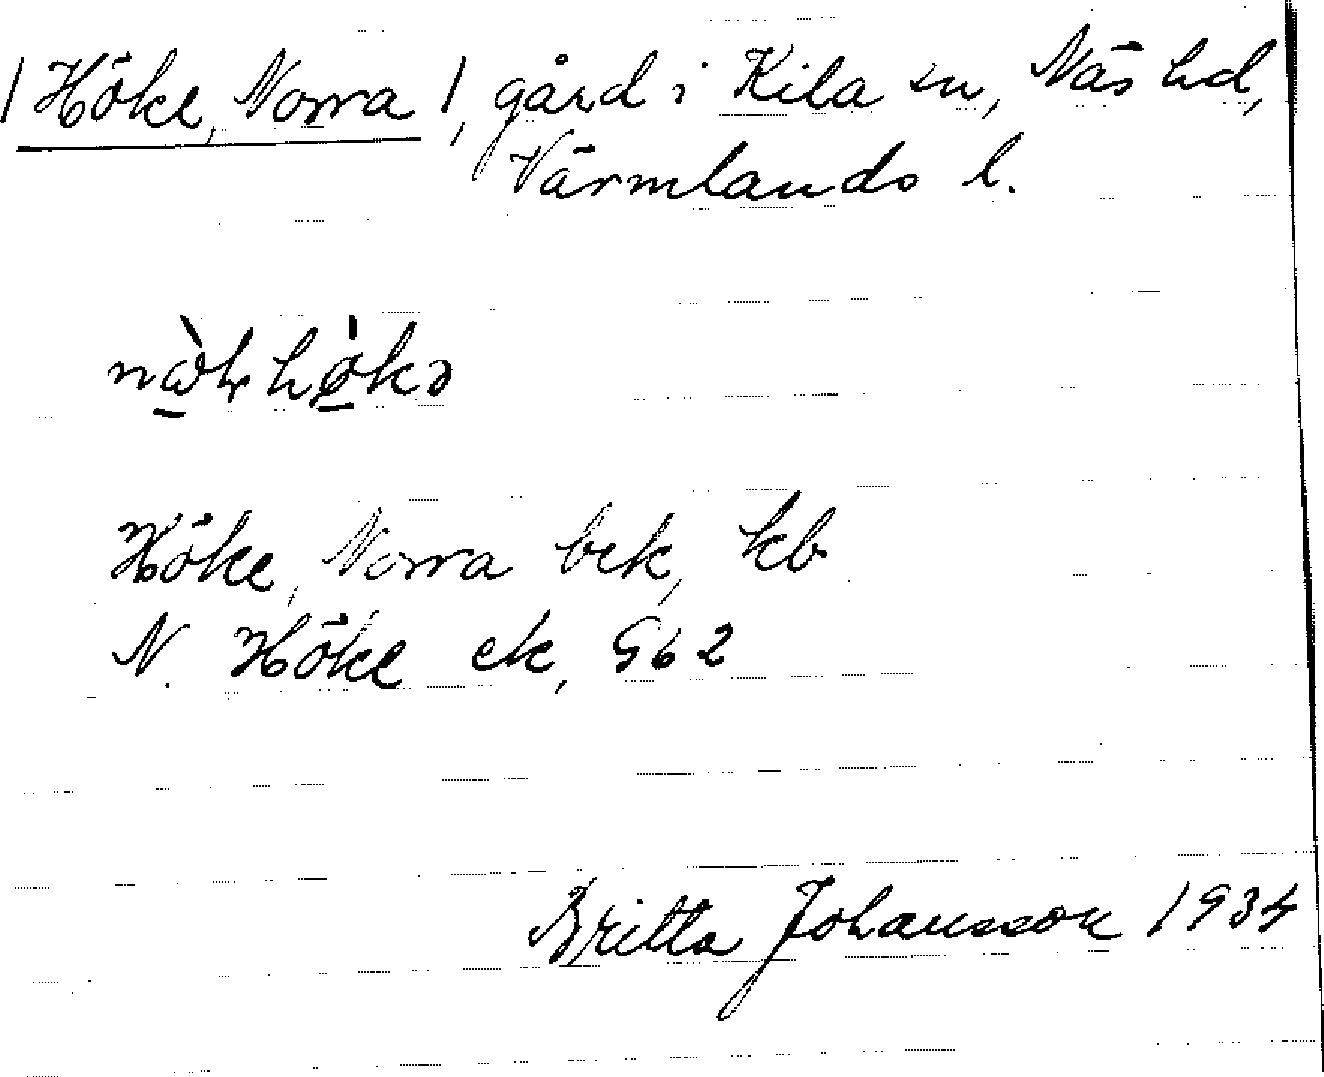 /Höke, Norra/, gård i Kila sn, Näs hd,
Värmlands l.
Höke, Norra bek, kb
N. Höke ek, 562
Britta Johansson 1934